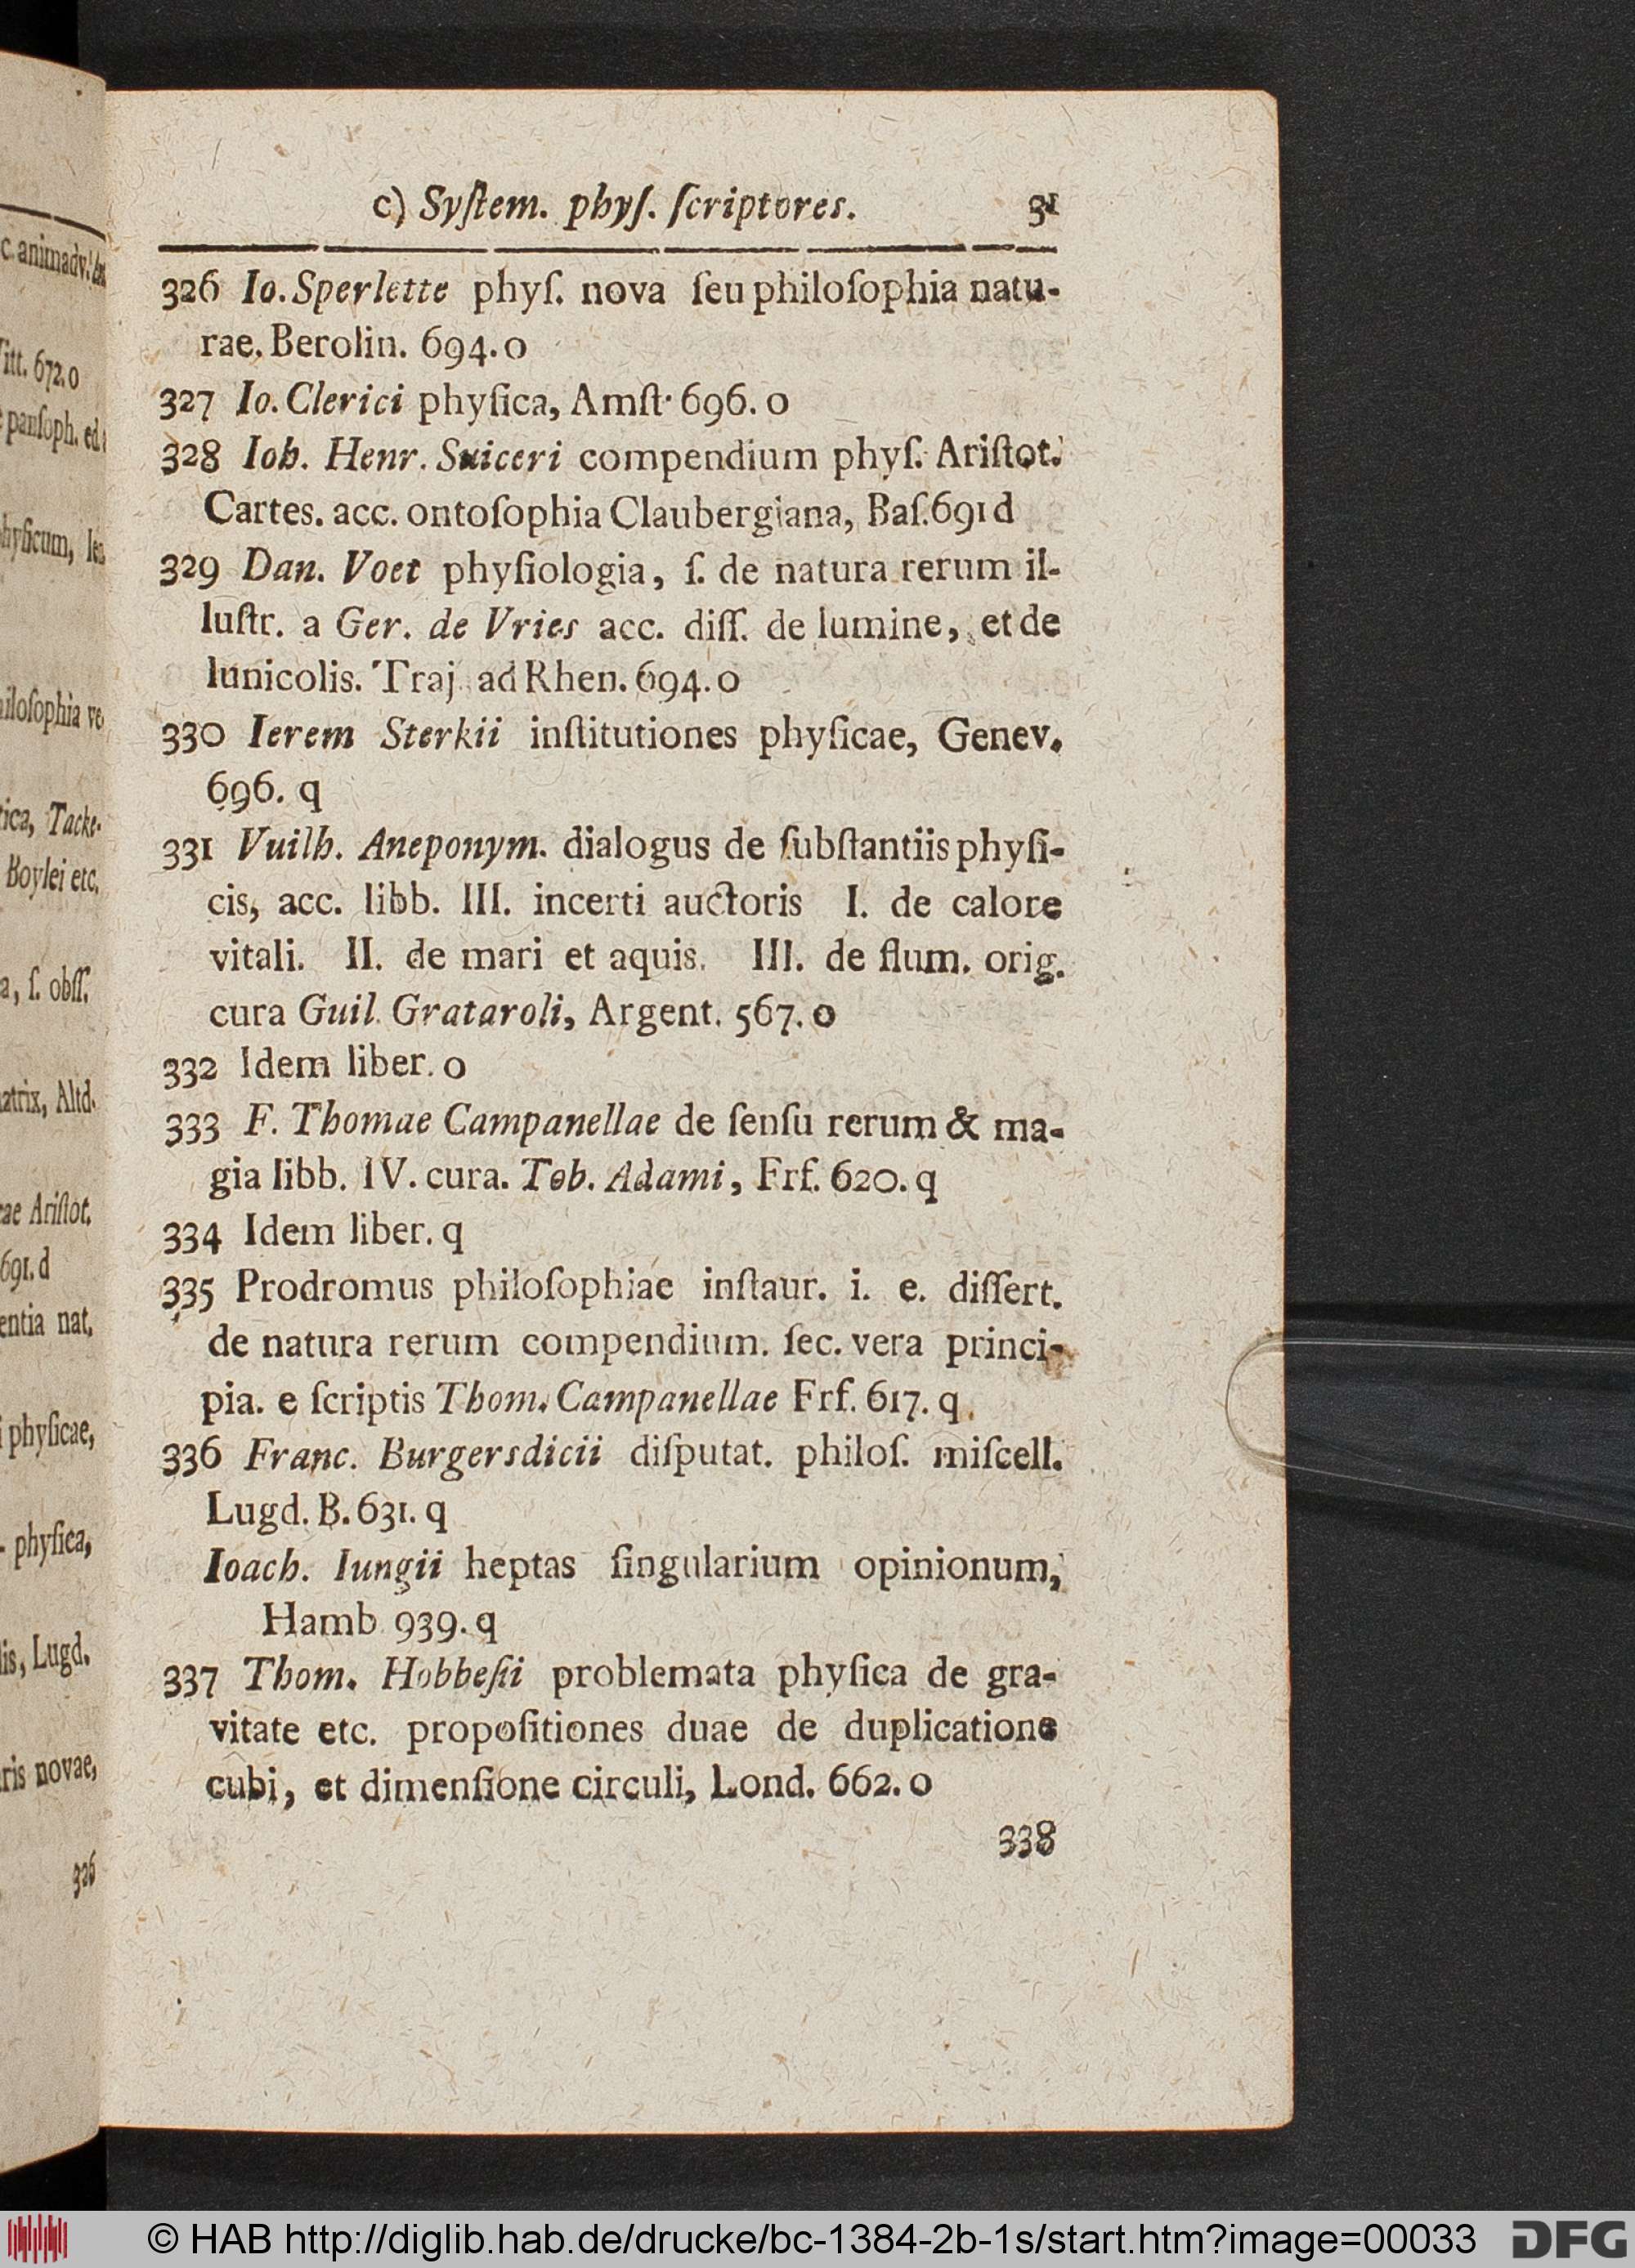 c) Syſtem. phyſ. ſcriptores. 31
326 Io. Sperlette phyſ. nova ſeu philoſophia natu-
rae. Berolin. 694. o
327 Io. Clerici phyſica, Amſt. 696. o
328 Ioh. Henr. Suiceri compendium phyſ. Ariſtot.
Cartes. acc. ontoſophia Claubergiana, Baſ. 691 d
329 Dan. Voet phyſiologia, ſ. de natura rerum il-
luſtr. a Ger. de Vries acc. diſſ. de lumine, et de
lunicolis. Traj. ad Rhen. 694. o
330 Ierem Sterkii inſtitutiones phyſicae, Genev.
696. q
331 Vuilh. Aneponym. dialogus de ſubſtantiis phyſi-
cis, acc. libb. III. incerti auctoris I. de calore
vitali. II. de mari et aquis. III. de flum. orig.
cura Guil. Grataroli, Argent. 567. o
332 Idem liber. o
333 F. Thomae Campanellae de ſenſu rerum & ma-
gia libb. IV. cura. Tob. Adami, Frf. 620. q
334 Idem liber. q
335 Prodromus philoſophiae inſtaur. i. e. diſſert.
de natura rerum compendium. ſec. vera princi-
pia. e ſcriptis Thom. Campanellae Frf. 617. q.
336 Franc. Burgersdicii diſputat. philoſ. miſcell.
Lugd. B. 631. q
Ioach. Iungii heptas ſingularium opinionum,
Hamb 939. q
337 Thom. Hobbeſii problemata phyſica de gra-
vitate etc. propoſitiones duae de duplicatione
cubi, et dimenſione circuli, Lond. 662. o
338
c. animadv.
Witt. 672. o
panſoph. ed
phyſicum,
philoſophia ve
tica, Tacke-
Boylei etc.
a, ſ. obſſ.
matrix, Altd.
Ariſtot.
691. d
entia nat.
phyſicae,
phyſica,
Lugd.
novae,
326
© HAB http://diglib.hab.de/drucke/bc-1384-2b-1s/start.htm?image=00033
DFG